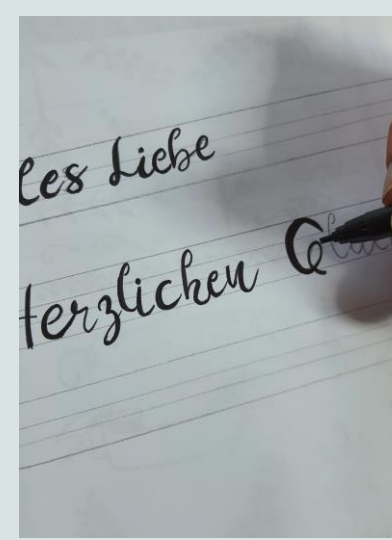 les Liebe
Herzlichen Glü